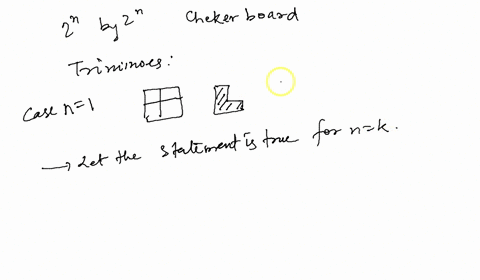 2ⁿ by 2ⁿ Cheker board
Triminoes:
Case n=1
→ Let the statement is true for n=k.